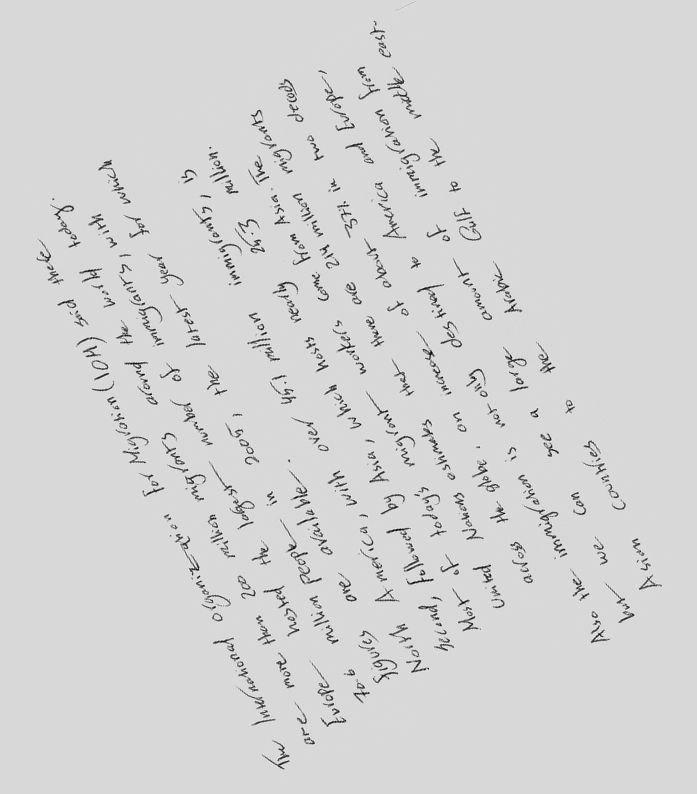 The International Organization for Migration (IOM) said there
are more then 200 million migrants around the world today.
Europe hosted the largest number of immigrants, with
70.6 million people in 2005, the latest year for which
figures are available.
North America, with over 45.1 million immigrants, is
second, followed by Asia, which hosts nearly 25.3 million.
Most of today's migrant workers come from Asia. The
United Nations estimates that there are 214 million migrants
across the globe, an increase of about 37% in two decads
Also the immigration is not only destined to America and Europe,
but we can see a large amount of immigration from
Asian Countries to the Arabic Gulf to the middle east.